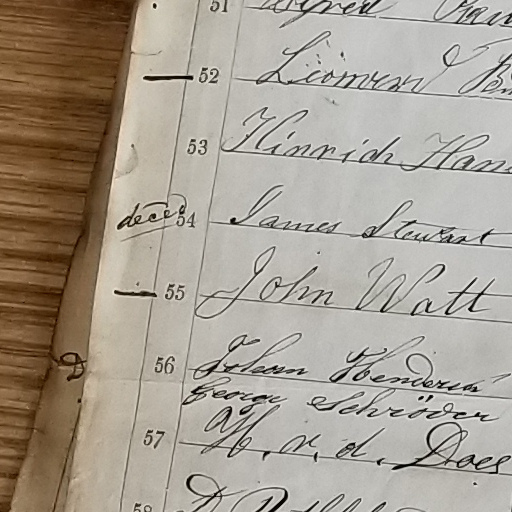 51 Alfred
52
53 Hinrich Han
deced 54 James Stewart
55 John Watt
D 56 Johann Henderson
George Schröder
57 H. v. d. Does
58